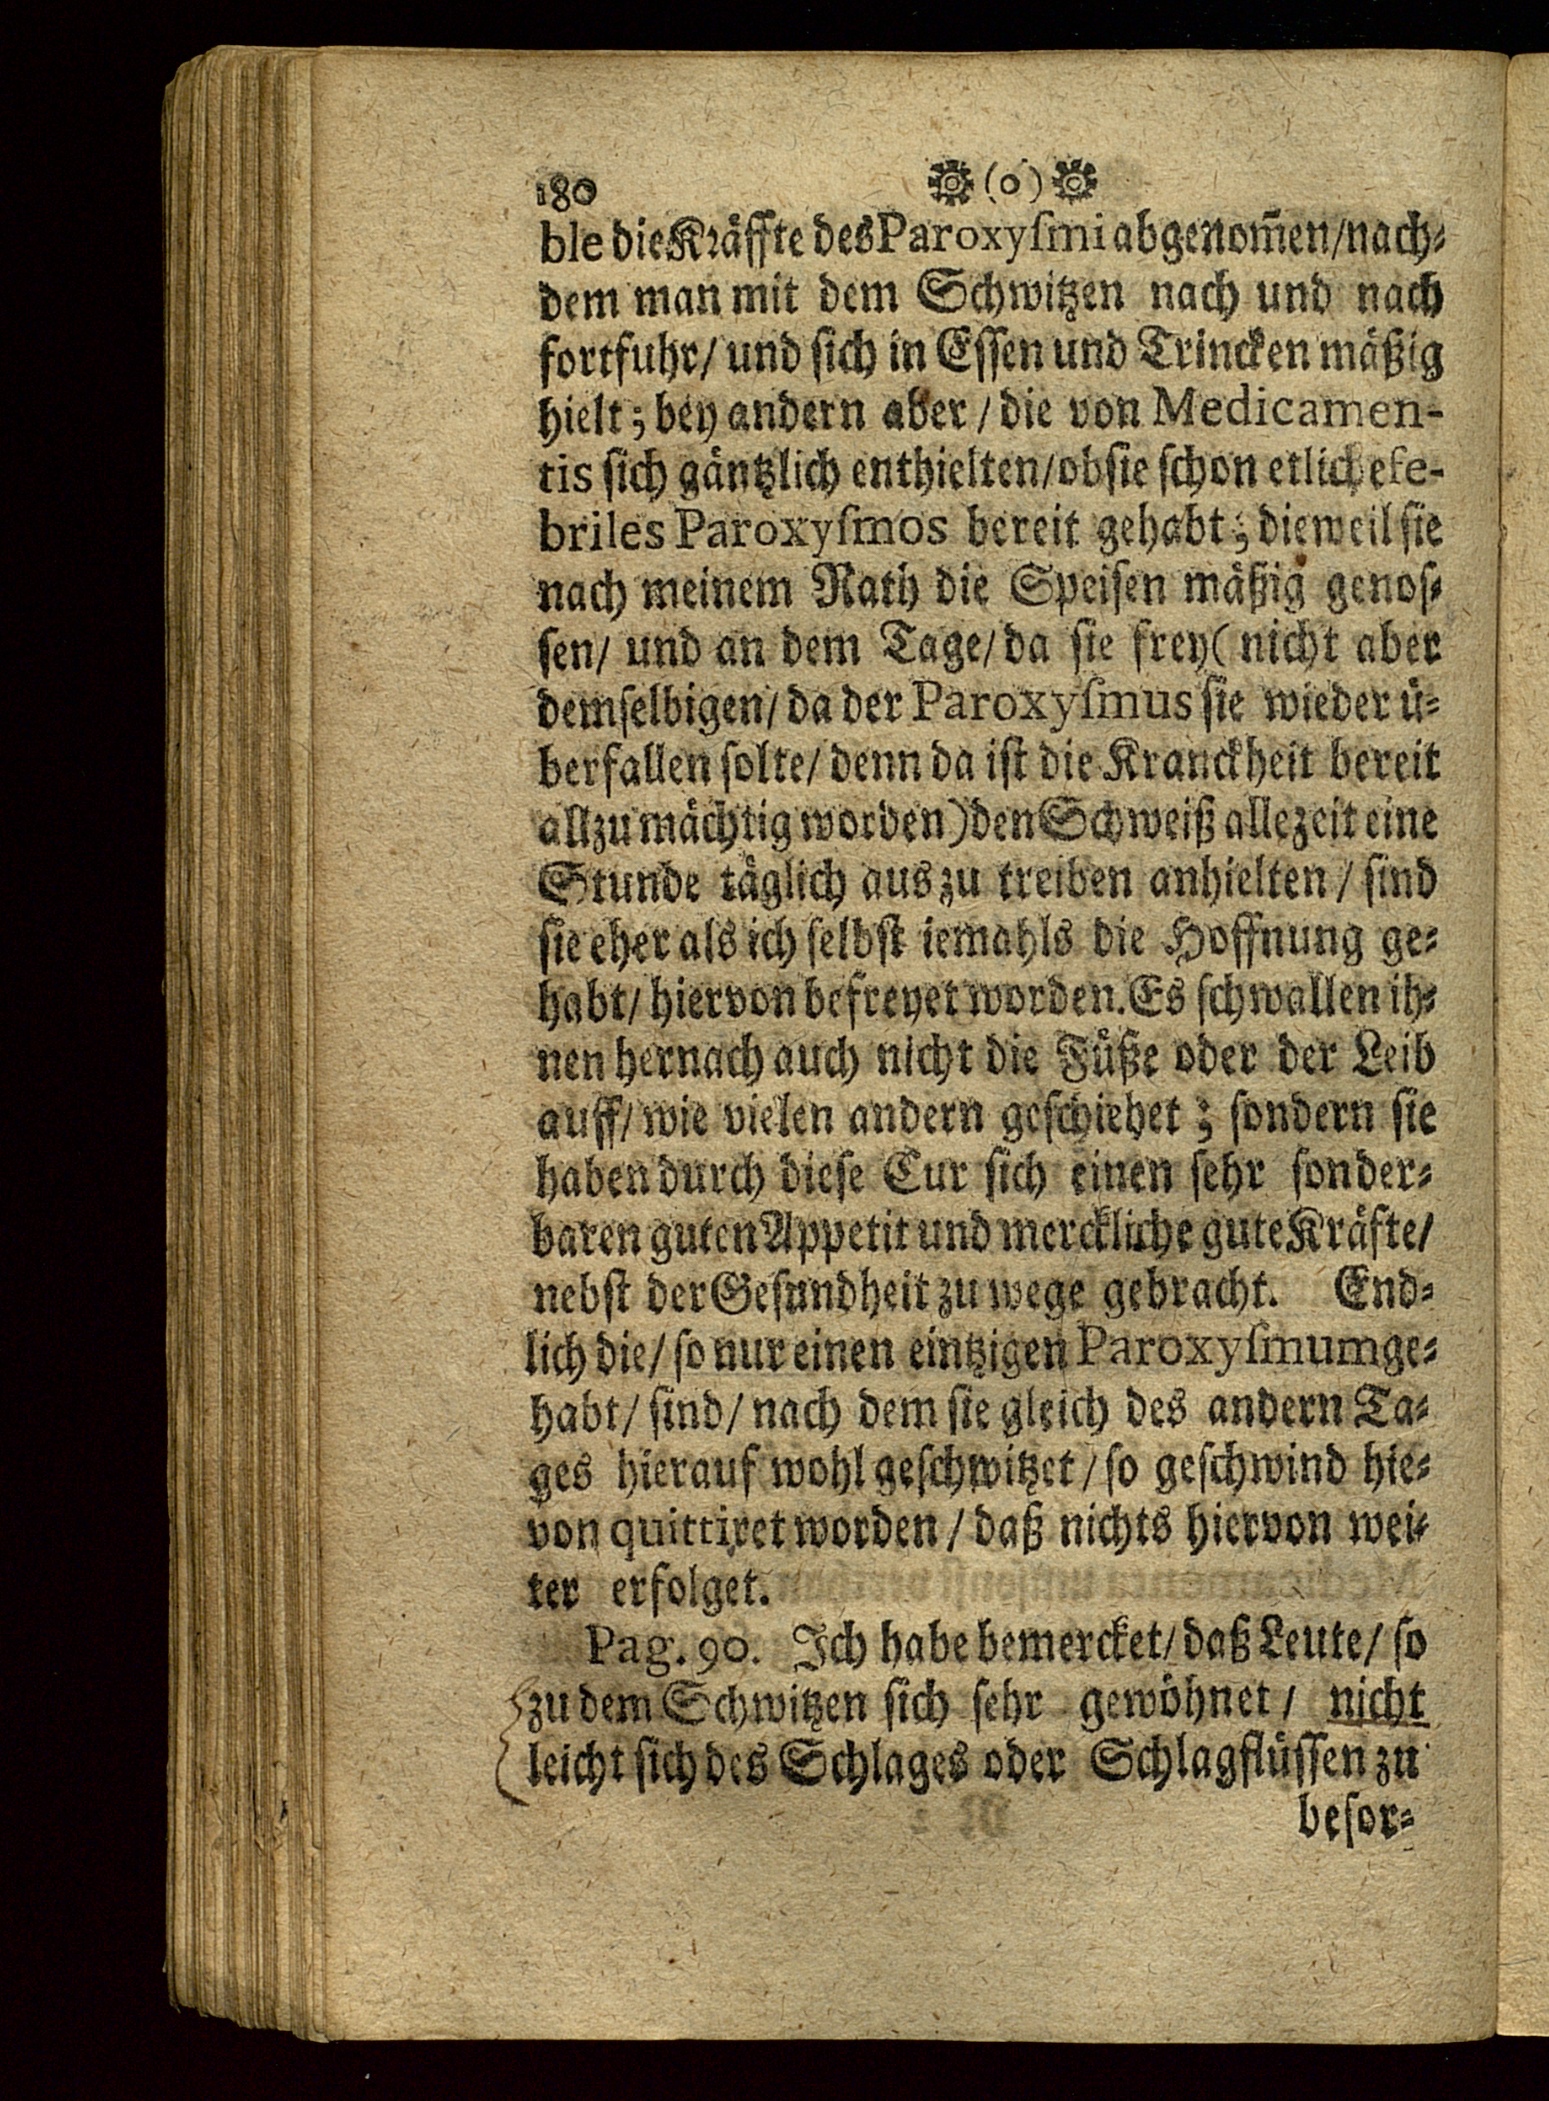 180 (o)
ble die Kräffte des Paroxyſmi abgenom̃en/nach-
dem man mit dem Schwitzen nach und nach
fortfuhr/ und sich in Essen und Trincken mäßig
hielt; bey andern aber/ die von Medicamen-
tis sich gäntzlich enthielten/ob sie schon etliche fe-
briles Paroxyſmos bereit gehabt; dieweil sie
nach meinem Rath die Speisen mäßig genos-
sen/ und an dem Tage/ da sie frey (nicht aber
demselbigen/ da der Paroxyſmus sie wieder ü-
berfallen solte/ denn da ist die Kranckheit bereit
allzu mächtig worden) den Schweiß allezeit eine
Stunde täglich aus zu treiben anhielten/ sind
sie eher als ich selbst iemahls die Hoffnung ge-
habt/ hiervon befreyet worden. Es schwallen ih-
nen hernach auch nicht die Füße oder der Leib
auff/ wie vielen andern geschiehet; sondern sie
haben durch diese Cur sich einen sehr sonder-
baren guten Appetit und merckliche gute Kräfte/
nebst der Gesundheit zu wege gebracht. End-
lich die/ so nur einen eintzigen Paroxyſmum ge-
habt/ sind/ nach dem sie gleich des andern Ta-
ges hierauf wohl geschwitzet/ so geschwind hie-
von quittiret worden/ daß nichts hiervon wei-
ter erfolget.
Pag. 90. Ich habe bemercket/ daß Leute/ so
zu dem Schwitzen sich sehr gewöhnet/ nicht
leicht sich des Schlages oder Schlagflüssen zu
besor-